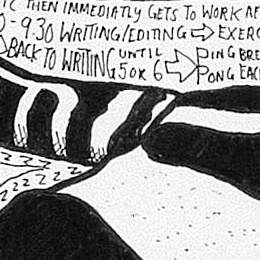 IC THEN IMMEDIATLY GETS TO WORK AF
0 - 9.30 WRITING/EDITING ⇨ EXERC
BACK TO WRITING UNTIL 5 OR 6 ⇨ PING
PONG EAC
ZZZZZ
ZZZZZZ